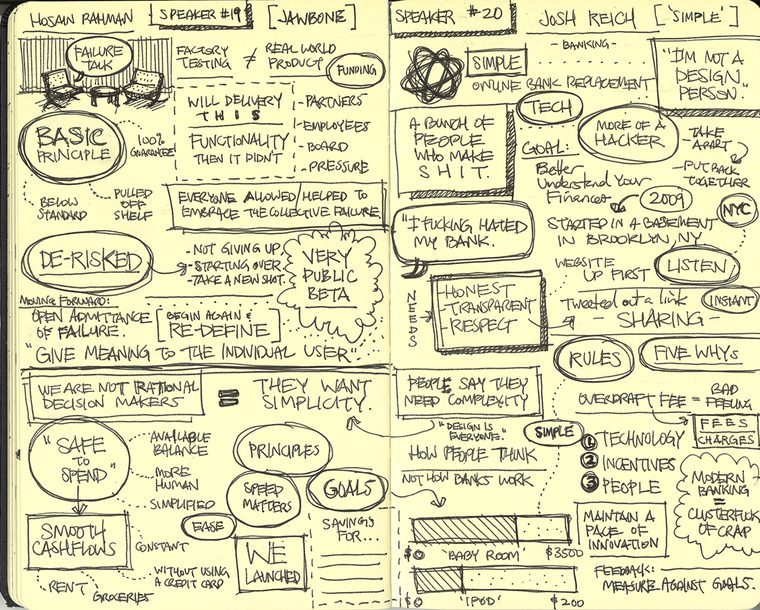 HOSAIN RAHMAN
SPEAKER #19
[JAWBONE]
FAILURE
TALK
FACTORY
TESTING
≠
REAL WORLD
PRODUCT
FUNDING
BASIC
PRINCIPLE
100%
GUARANTEE
BELOW
STANDARD
PULLED
OFF
SHELF
WILL DELIVERY
THIS
FUNCTIONALITY
THEN IT DIDN'T
-PARTNERS
-EMPLOYEES
-BOARD
-PRESSURE
EVERYONE ALLOWED/HELPED TO
EMBRACE THE COLLECTIVE FAILURE
DE-RISKED
-NOT GIVING UP
-STARTING OVER
-TAKE A NEW SHOT.
VERY
PUBLIC
BETA
MOVING FORWARD:
OPEN ADMITTANCE
OF FAILURE.
[BEGIN AGAIN &
RE-DEFINE]
"GIVE MEANING TO THE INDIVIDUAL USER"
WE ARE NOT RATIONAL
DECISION MAKERS
=
THEY WANT
SIMPLICITY.
"SAFE
TO
SPEND"
AVAILABLE
BALANCE
MORE
HUMAN
SIMPLIFIED
PRINCIPLES
SPEED
MATTERS
GOALS
EASE
SMOOTH
CASHFLOWS
CONSTANT
RENT
GROCERIES
WITHOUT USING
A CREDIT CARD
WE
LAUNCHED
SAVINGS
FOR...
SPEAKER #20
JOSH REICH
['SIMPLE']
-BANKING-
SIMPLE
ONLINE BANK REPLACEMENT
"I'M NOT A
DESIGN
PERSON."
TECH
A BUNCH OF
PEOPLE
WHO MAKE
SHIT.
GOAL:
Better
Understand Your
Finances
MORE OF A
HACKER
-TAKE
APART
-PUT BACK
TOGETHER
2009
NYC
"I FUCKING HATED
MY BANK.
STARTED IN A BASEMENT
IN BROOKLYN, NY
WEBSITE
UP FIRST
LISTEN
NEEDS
-HONEST
-TRANSPARENT
-RESPECT
Tweeted out a link
INSTANT
- SHARING -
RULES
FIVE WHYs
PEOPLE SAY THEY
NEED COMPLEXITY
OVERDRAFT FEE = BAD
FEELING
"DESIGN IS
EVERYONE."
SIMPLE
FEES
CHARGES
HOW PEOPLE THINK
NOT HOW BANKS WORK
1 TECHNOLOGY
2 INCENTIVES
3 PEOPLE
MODERN
BANKING
=
CLUSTERFUCK
OF CRAP
$0 'BABY ROOM' $3500
$0 'IPOD' $200
MAINTAIN A
PACE OF
INNOVATION
FEEDBACK:
MEASURE AGAINST GOALS.